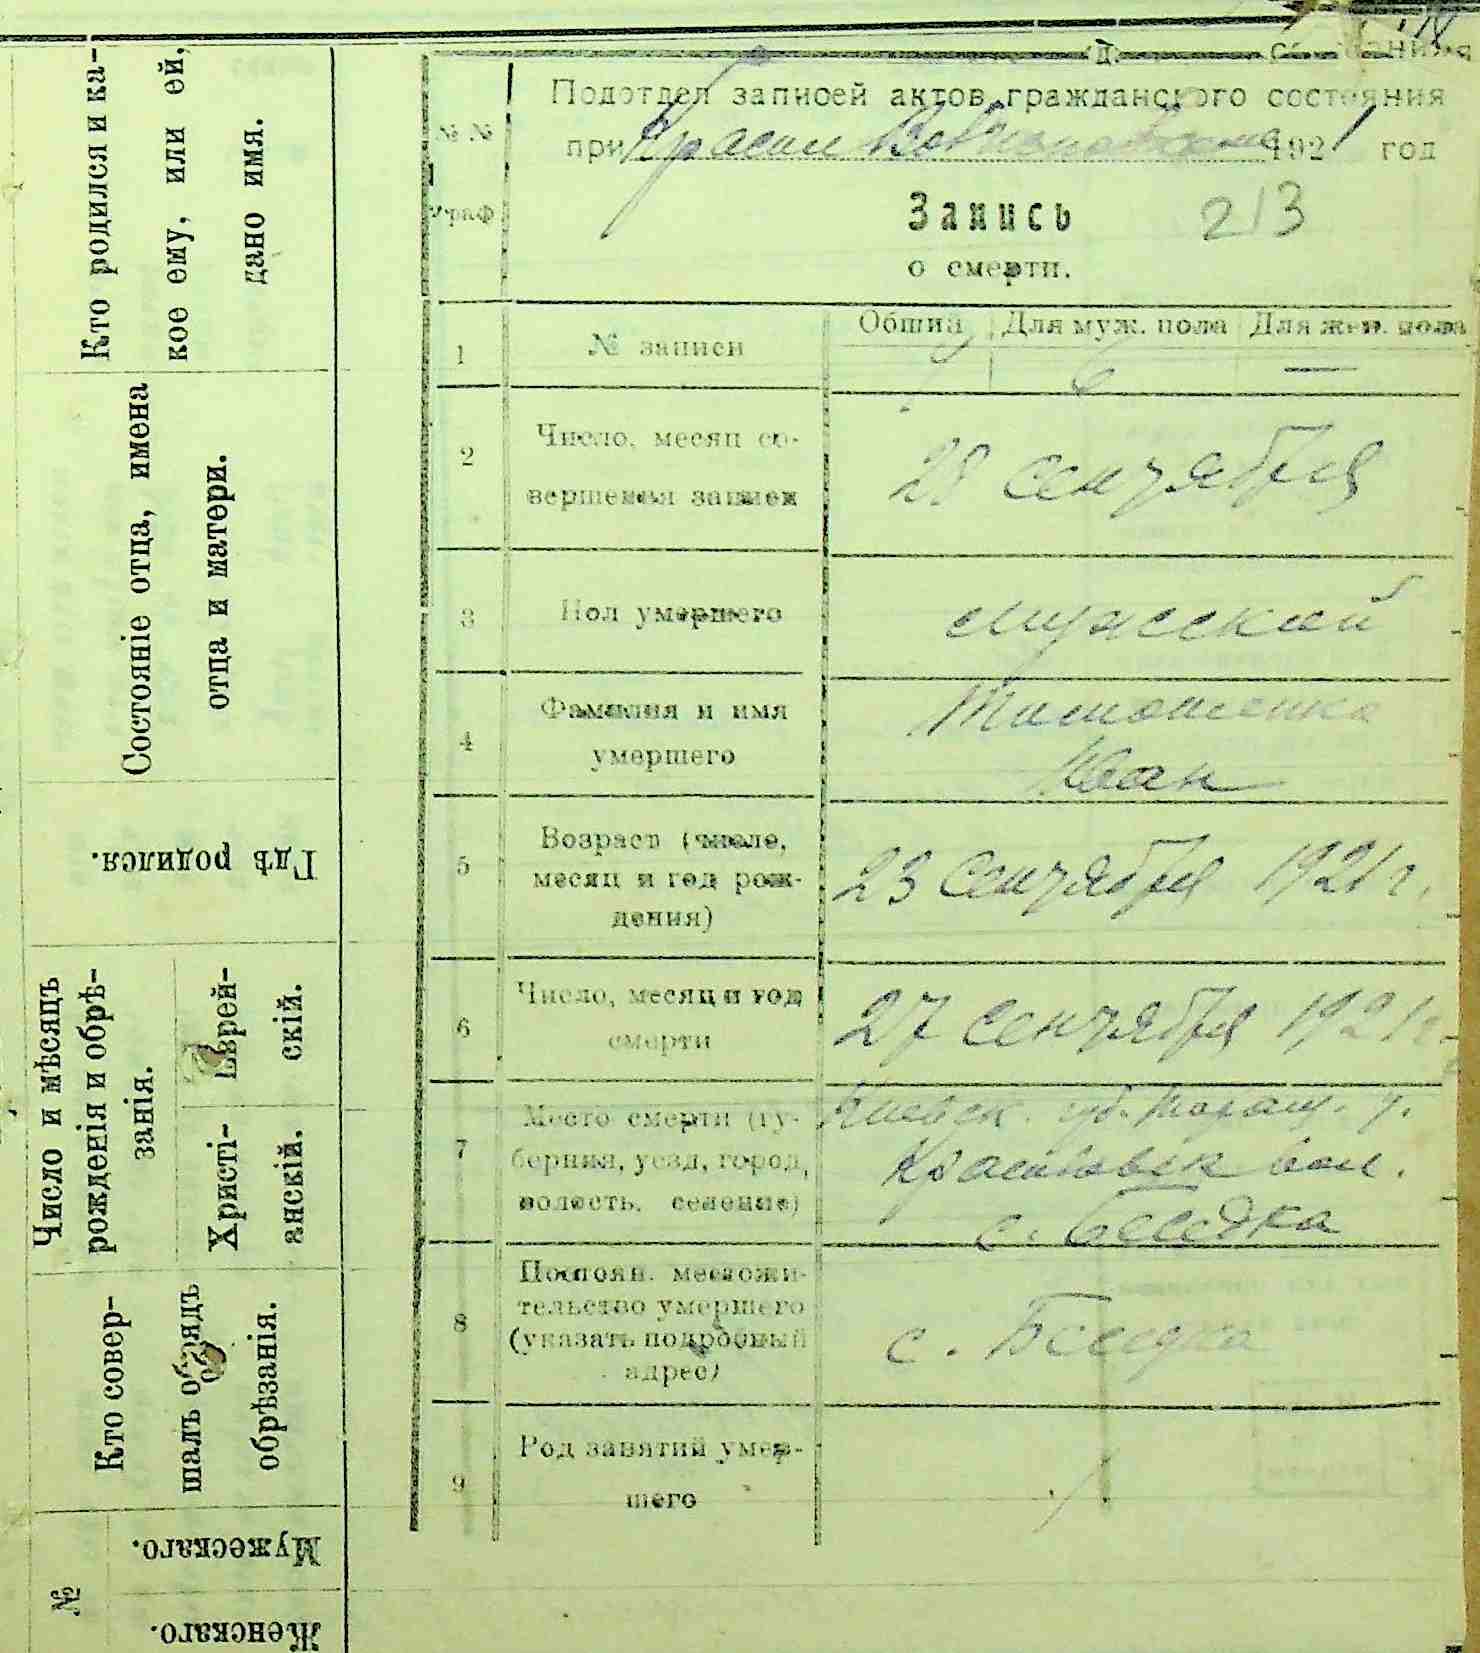 Кто родился и ка-
кое ему, или ей,
дано имя.
Состояніе отца, имена
отца и матери.
Гдѣ родился.
Число и мѣсяцъ
рожденія и обрѣ-
занія.
Христі-
анскій.
Еврей-
скій.
Кто совер-
шалъ обрядъ
обрѣзанія.
№
Мужескаго.
Женскаго.
Подотдел записей актов гражданского состояния
при 1921 год
№ №
граф
Запись 213
о смерти.
1 № записи
Общий Для муж. пола Для жен. пола
6 —
2 Число, месяц со-
вершения записи
28 сентября
3 Пол умершего
мужеский
4 Фамилия и имя
умершего
Тимошенко
Иван
5 Возраст (число,
месяц и год рож-
дения)
23 сентября 1921 г.
6 Число, месяц и год
смерти
27 сентября 1921 г.
7 Место смерти (гу-
берния, уезд, город,
волость, селение)
Киевск. губ. Таращ. у.
вол.
с. Беседка
8 Постоян. местожи-
тельство умершего
(указать подробный
адрес)
с. Беседка
9 Род занятий умер-
шего